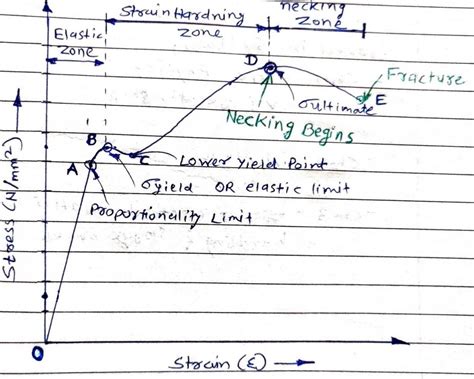 necking
zone
Strain Hardning
zone
Elastic
zone
D
Fracture
E
σultimate
Necking Begins
B
C
Lower Yield Point
A
σyield OR elastic limit
Proportionality Limit
Stress (N/mm²)
O
Strain (ε)